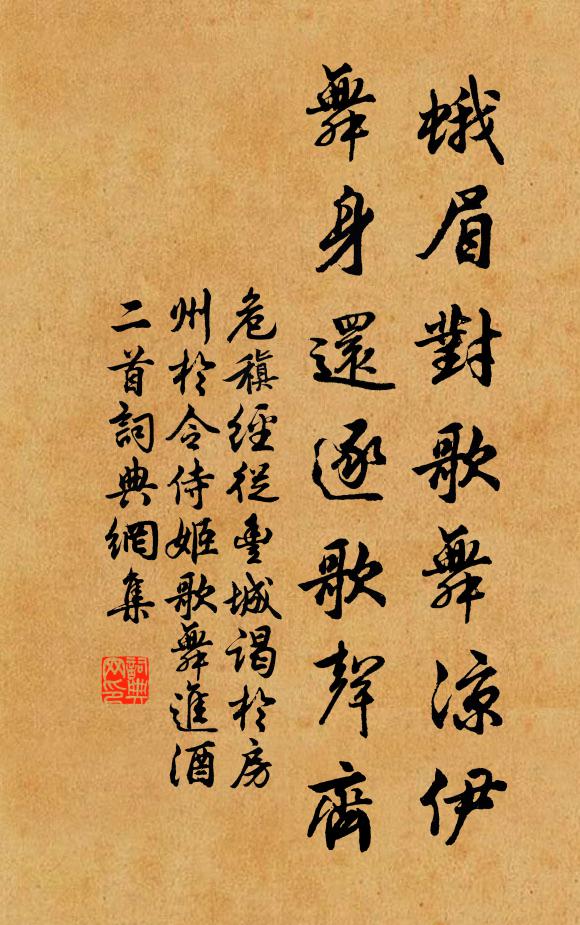 蛾眉對歌舞涼伊
舞身還逐歌聲齊
危稹經從豐城謁於房
州於令侍姬歌舞進酒
二首詞典網集
詞典网印